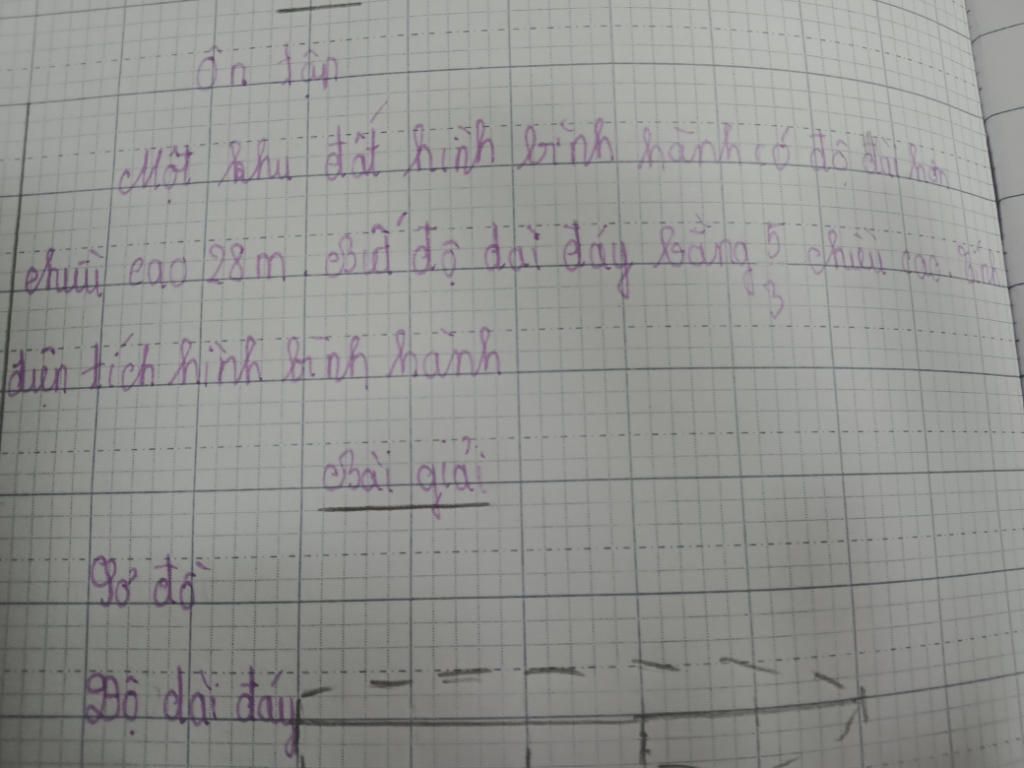 Ôn tập
Một khu đất hình bình hành có độ dài hơn
chiều cao 28m. Biết độ dài đáy bằng 5/3 chiều cao. Tính
diện tích hình bình hành
Bài giải
Sơ đồ
Độ dài đáy